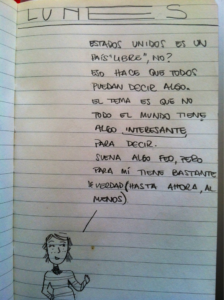 LUNES
ESTADOS UNIDOS ES UN
PAÍS "LIBRE", NO?
ESO HACE QUE TODOS
PUEDAN DECIR ALGO.
EL TEMA ES QUE NO
TODO EL MUNDO TIENE
ALGO INTERESANTE
PARA DECIR.
SUENA ALGO FEO, PERO
PARA MÍ TIENE BASTANTE
DE VERDAD (HASTA AHORA, AL
MENOS)